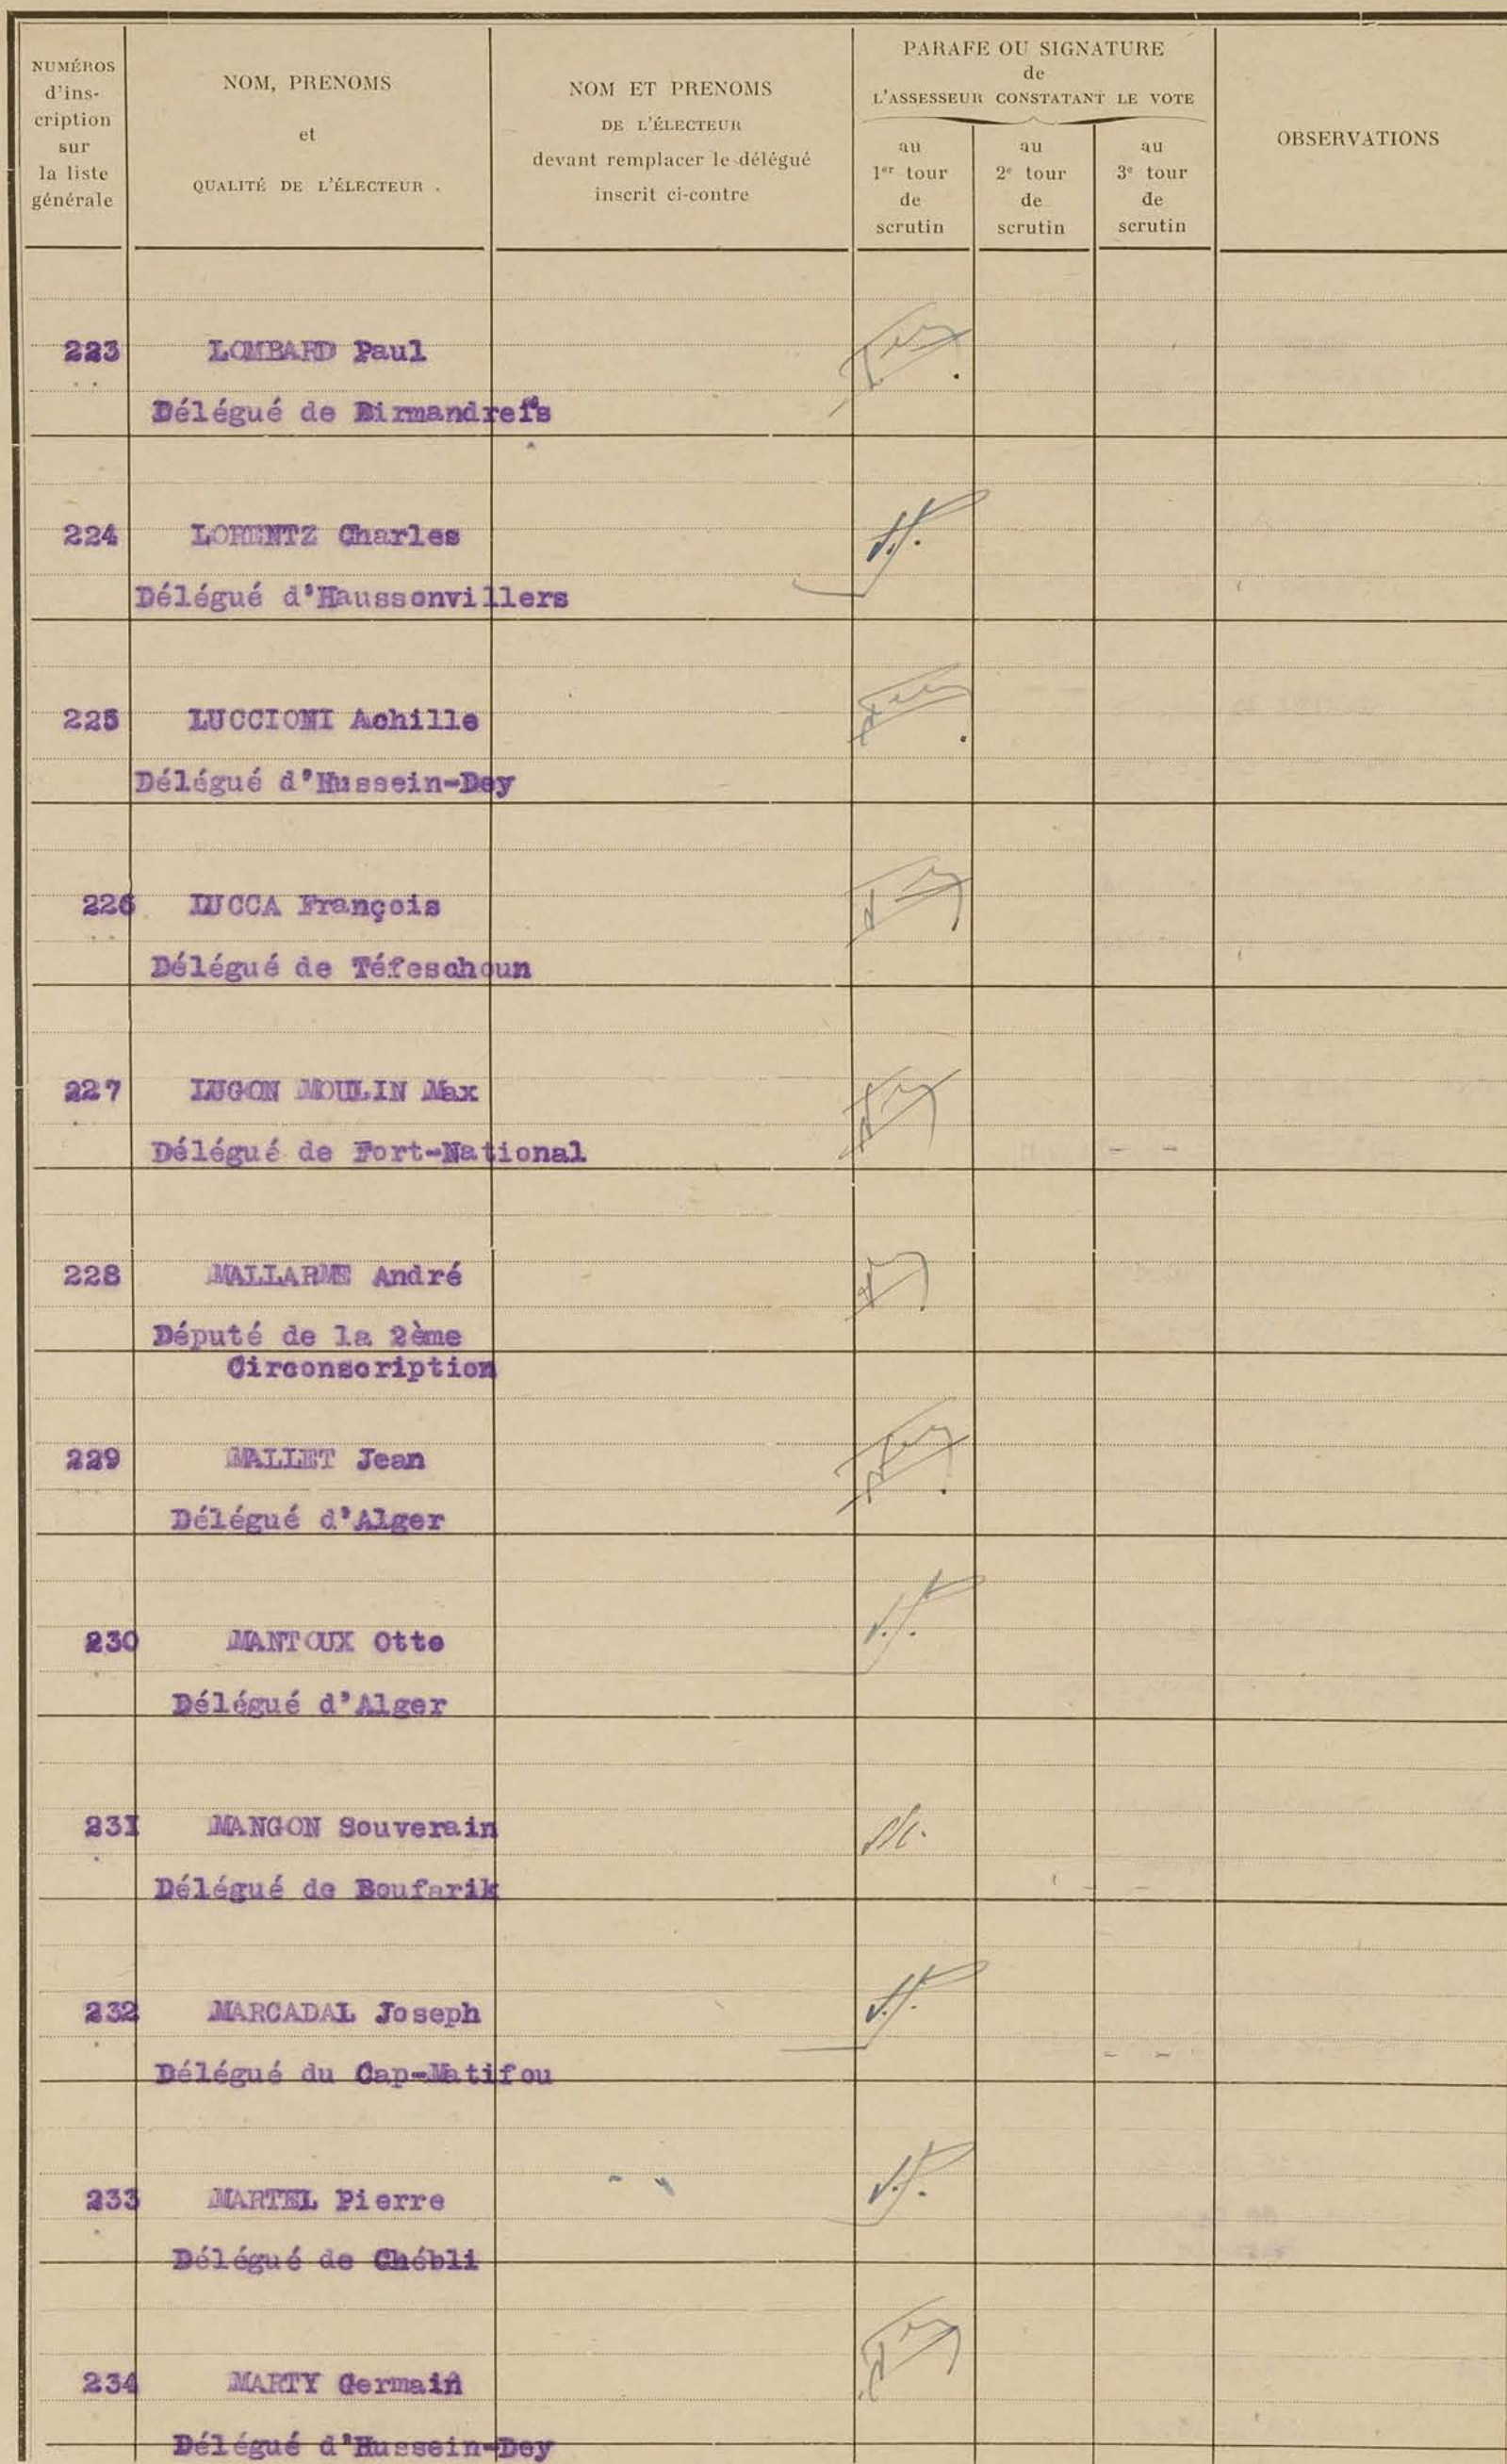 NUMÉROS
d'ins-
cription
sur
la liste
générale
NOM, PRENOMS
et
QUALITÉ DE L'ÉLECTEUR .
NOM ET PRENOMS
DE L'ÉLECTEUR
devant remplacer le délégué
inscrit ci-contre
PARAFE OU SIGNATURE
de
L'ASSESSEUR CONSTATANT LE VOTE
au
1er tour
de
scrutin
au
2e tour
de
scrutin
au
3e tour
de
scrutin
OBSERVATIONS
223 LOMBARD Paul
Délégué de Birmandreïs
224 LORENTZ Charles
Délégué d'Haussonvillers
225 LUCCIONI Achille
Délégué d'Hussein-Dey
226 LUCCA François
Délégué de Téfeschoun
227 LUGON MOULIN Max
Délégué de Fort-National
228 MALLARME André
Député de la 2ème
Circonscription
229 MALLET Jean
Délégué d'Alger
230 MANTOUX Otto
Délégué d'Alger
231 MANGON Souverain
Délégué de Boufarik
232 MARCADAL Joseph
Délégué du Cap-Matifou
233 MARTEL Pierre
Délégué de Chébli
234 MARTY Germain
Délégué d'Hussein-Dey